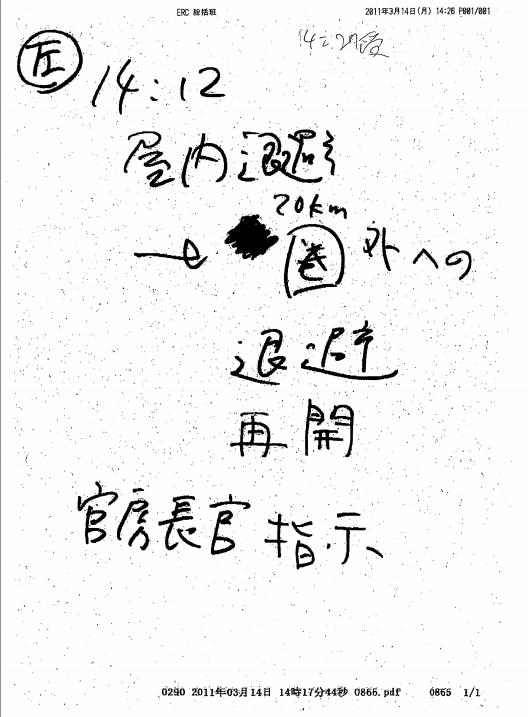 ERC 総括班 2011年3月14日(月) 14:26 P001/001
14:27受
14:12
屋内退避
20km
→ 圏外への
退避
再開
官房長官 指示
0290 2011年03月14日 14時17分44秒 0865.pdf 0865 1/1